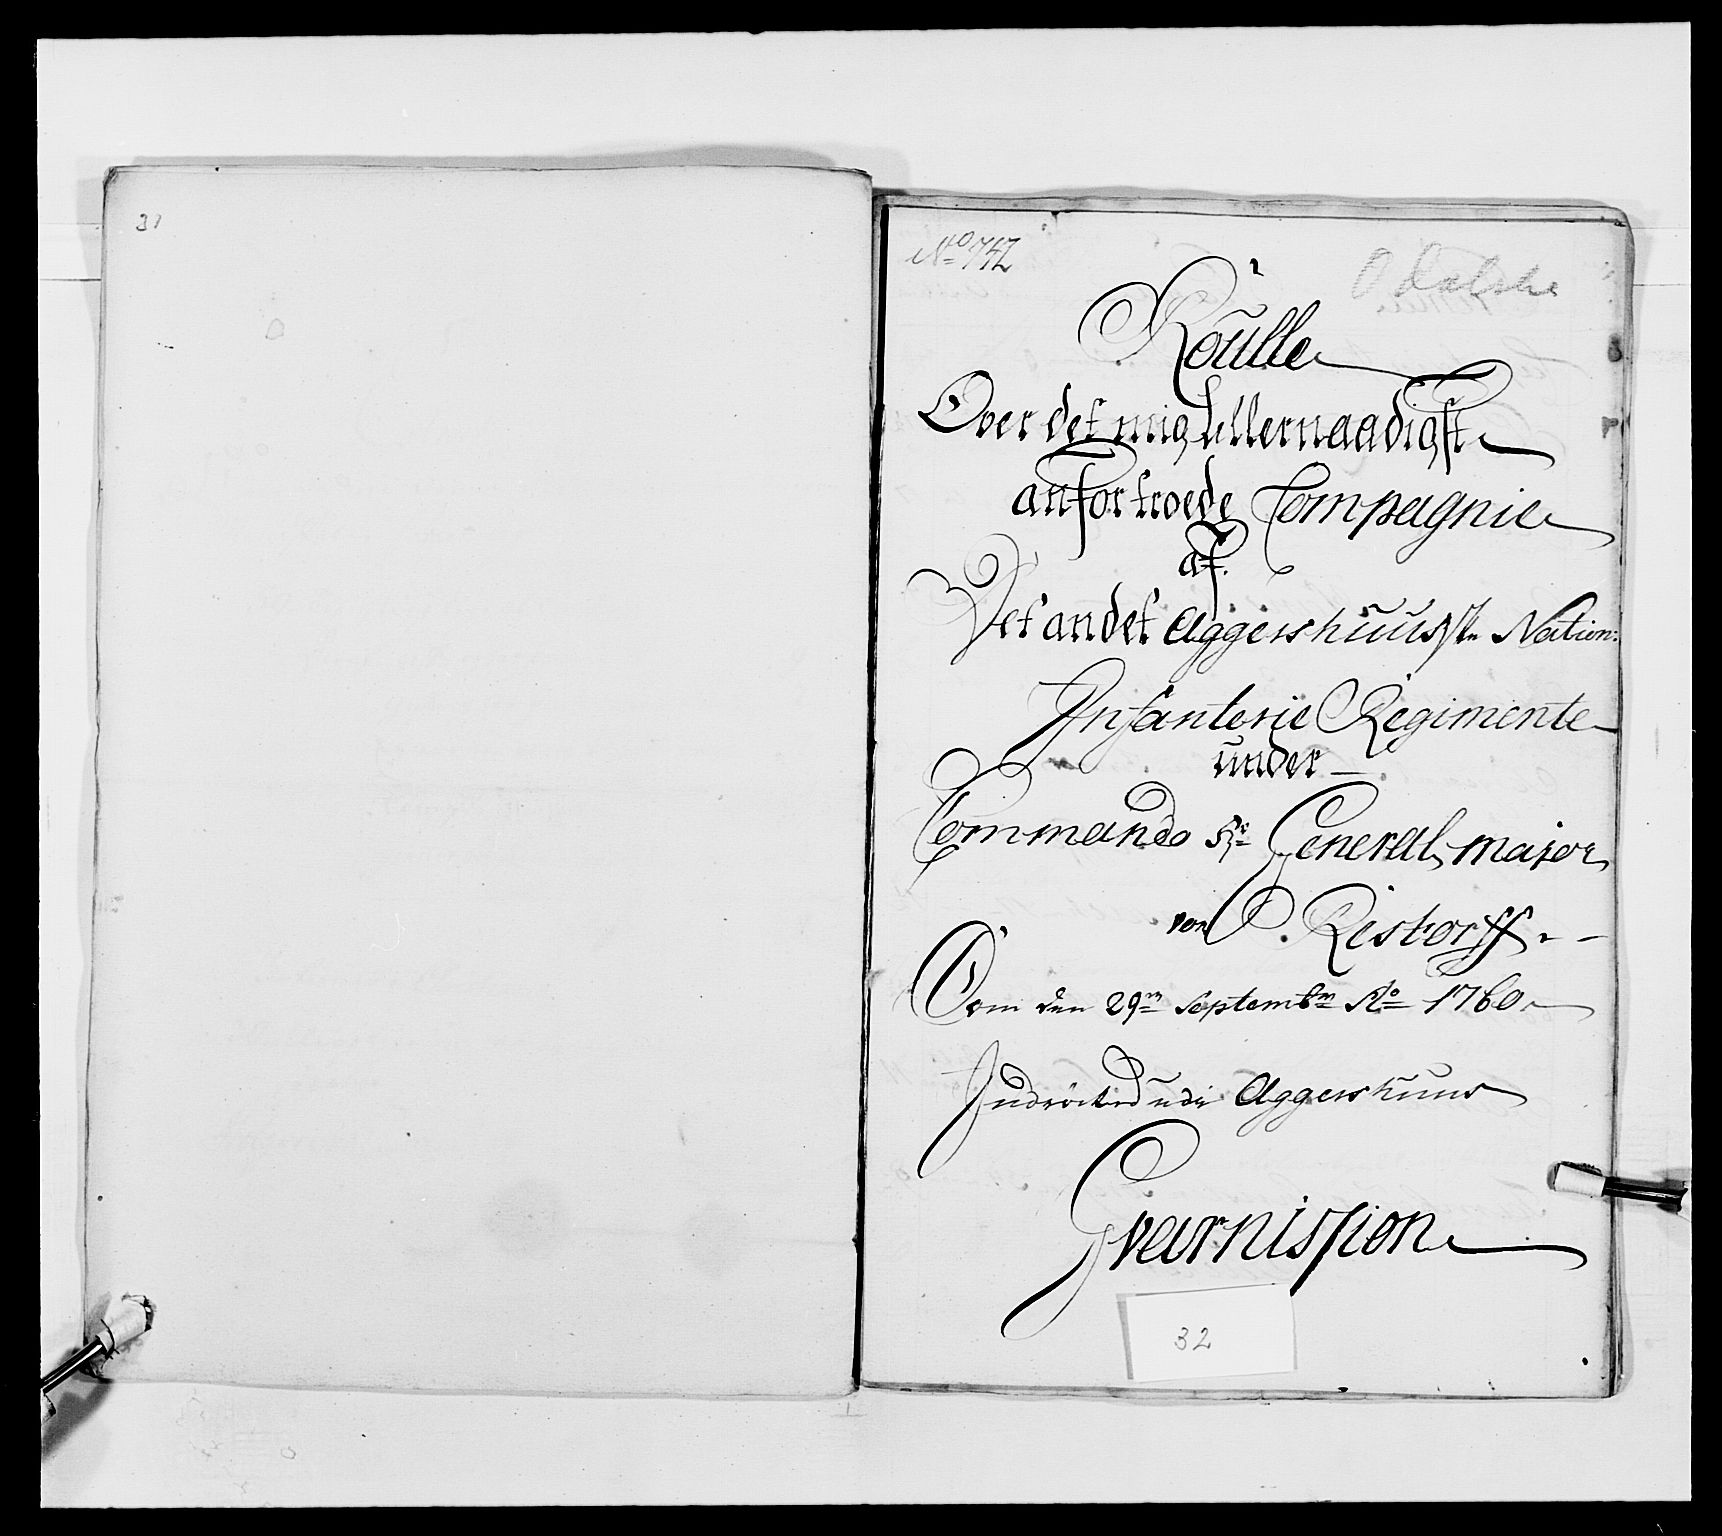 31
No 742
Odalske
Roulle
Over det mig allernaadigst
anfortroede Compagnie
af.
Det andet Aggershuusske Nation:
Infanterie Regimente
under
Commando Hr General major
von Restorff.
Som den 29m Septembr Ao 1760
Indröcked udi Aggershuus
Gvarnission
32